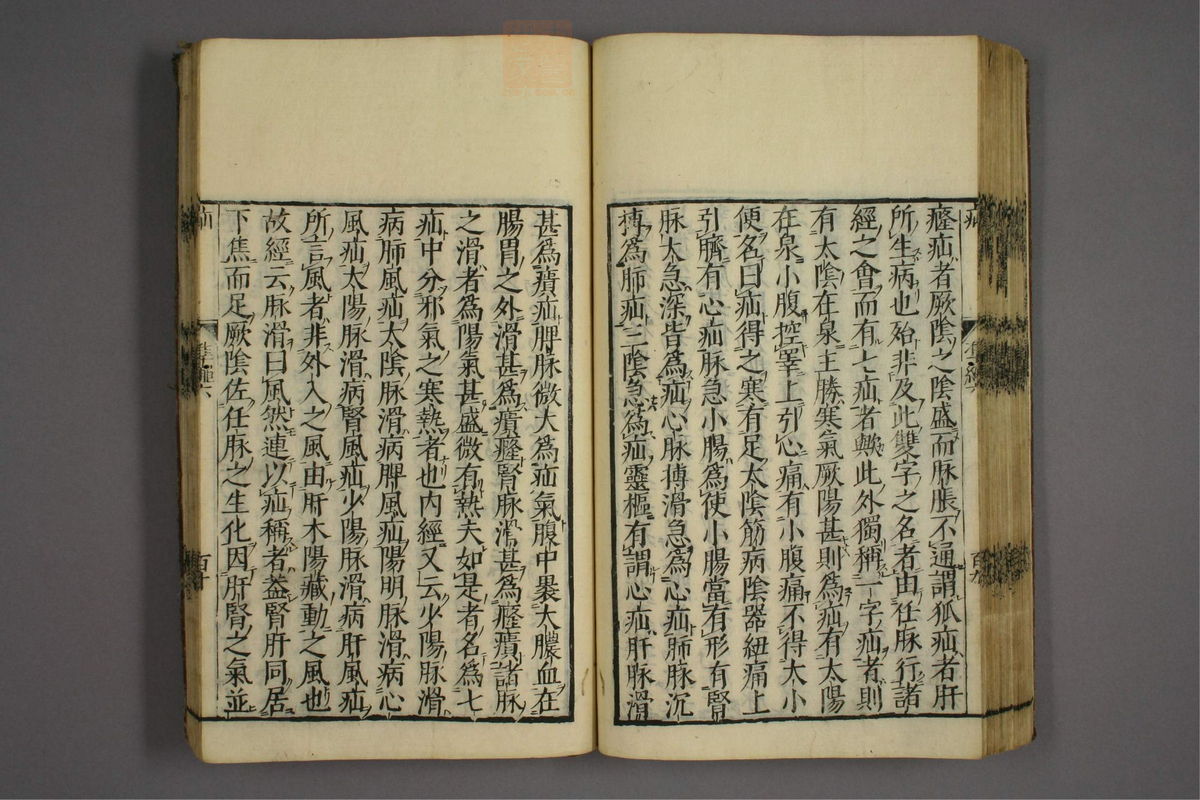 癃疝者厥陰之陰盛而脉脹不通謂狐疝者肝
所生病也殆非及此雙字之名者由任脉行諸
經之會而有七疝者歟此外獨稱一字疝者則
有太陰在泉主勝寒氣厥陽甚則為疝有太陽
在泉小腹控睪上引心痛有小腹痛不得大小
便名曰疝得之寒有足太陰筋病陰器紐痛上
引臍有心疝脉急小腸為使小腸當有形有腎
脉大急深皆為疝心脉搏滑急為心疝肺脉沉
搏為肺疝三陰急為疝靈樞有謂心疝肝脉滑
甚為㿗疝脾脉微大為疝氣腹中裹大膿血在
腸胃之外滑甚為㿗癃腎脉滑甚為癃㿗諸脉
之滑者為陽氣甚盛微有熱夫如是者名為七
疝中分邪氣之寒熱者也内經又云少陽脉滑
病肺風疝太陰脉滑病脾風疝陽明脉滑病心
風疝太陽脉滑病腎風疝少陽脉滑病肝風疝
所言風者非外入之風由肝木陽藏動之風也
故經云脉滑曰風然連以疝稱者蓋腎肝同居
下焦而足厥陰佐任脉之生化因肝腎之氣並
百九
百十